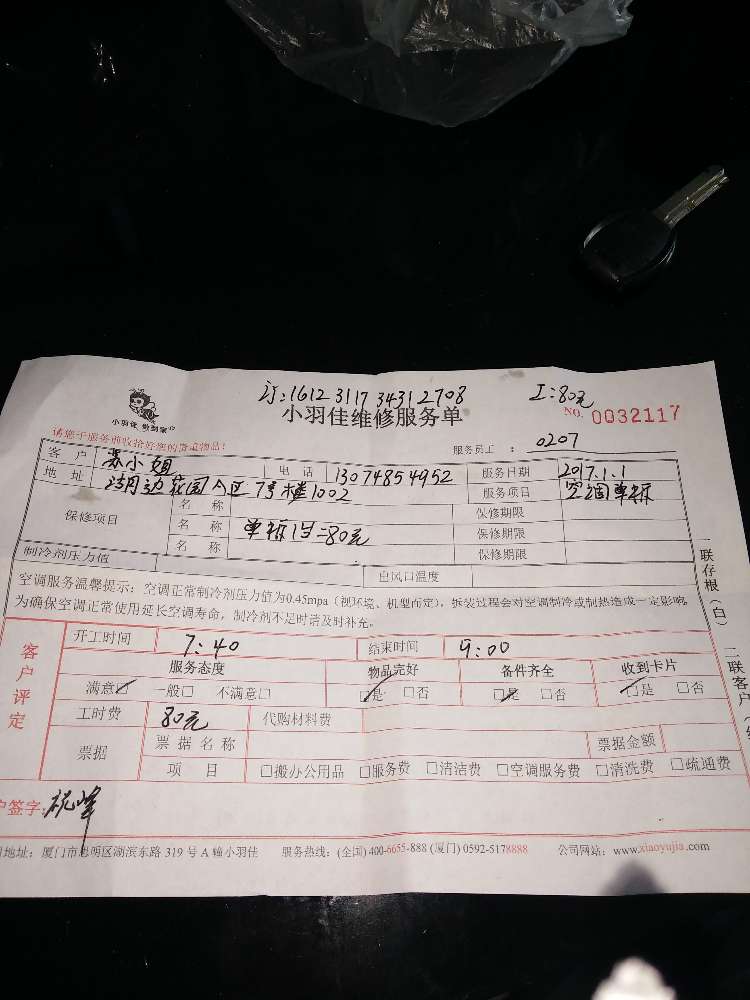 订:1612 3117 34312708 工:80元
小羽佳 做到家
小羽佳维修服务单
NO. 0032117
请您于服务前收拾好您的贵重物品!
服务员工 : 0207
客 户 苏小姐 电 话 13074854952 服务日期 2017.1.1
地 址 花园A区7号楼1002 服务项目 空调单拆
保修项目
名 称 保修期限
名 称 单拆1台=80元 保修期限
名 称 保修期限
制冷剂压力值 出风口温度
空调服务温馨提示:空调正常制冷剂压力值为0.45mpa(视环境、机型而定),拆装过程会对空调制冷或制热造成一定影响,
为确保空调正常使用延长空调寿命,制冷剂不足时请及时补充。
客户评定
开工时间 7:40 结束时间 9:00
服务态度 物品完好 备件齐全 收到卡片
满意☑ 一般□ 不满意□ ☑是 □否 ☑是 □否 ☑是 □否
工时费 80元 代购材料费
票据 票 据 名 称 票据金额
项 目 □搬办公用品 □服务费 □清洁费 □空调服务费 □清洗费 □疏通费
户签字:
地址:厦门市思明区湖滨东路 319 号 A 幢小羽佳 服务热线:(全国) 400-6655-888 (厦门) 0592-5178888 公司网站:www.xiaoyujia.com
一联存根(白)
二联客户